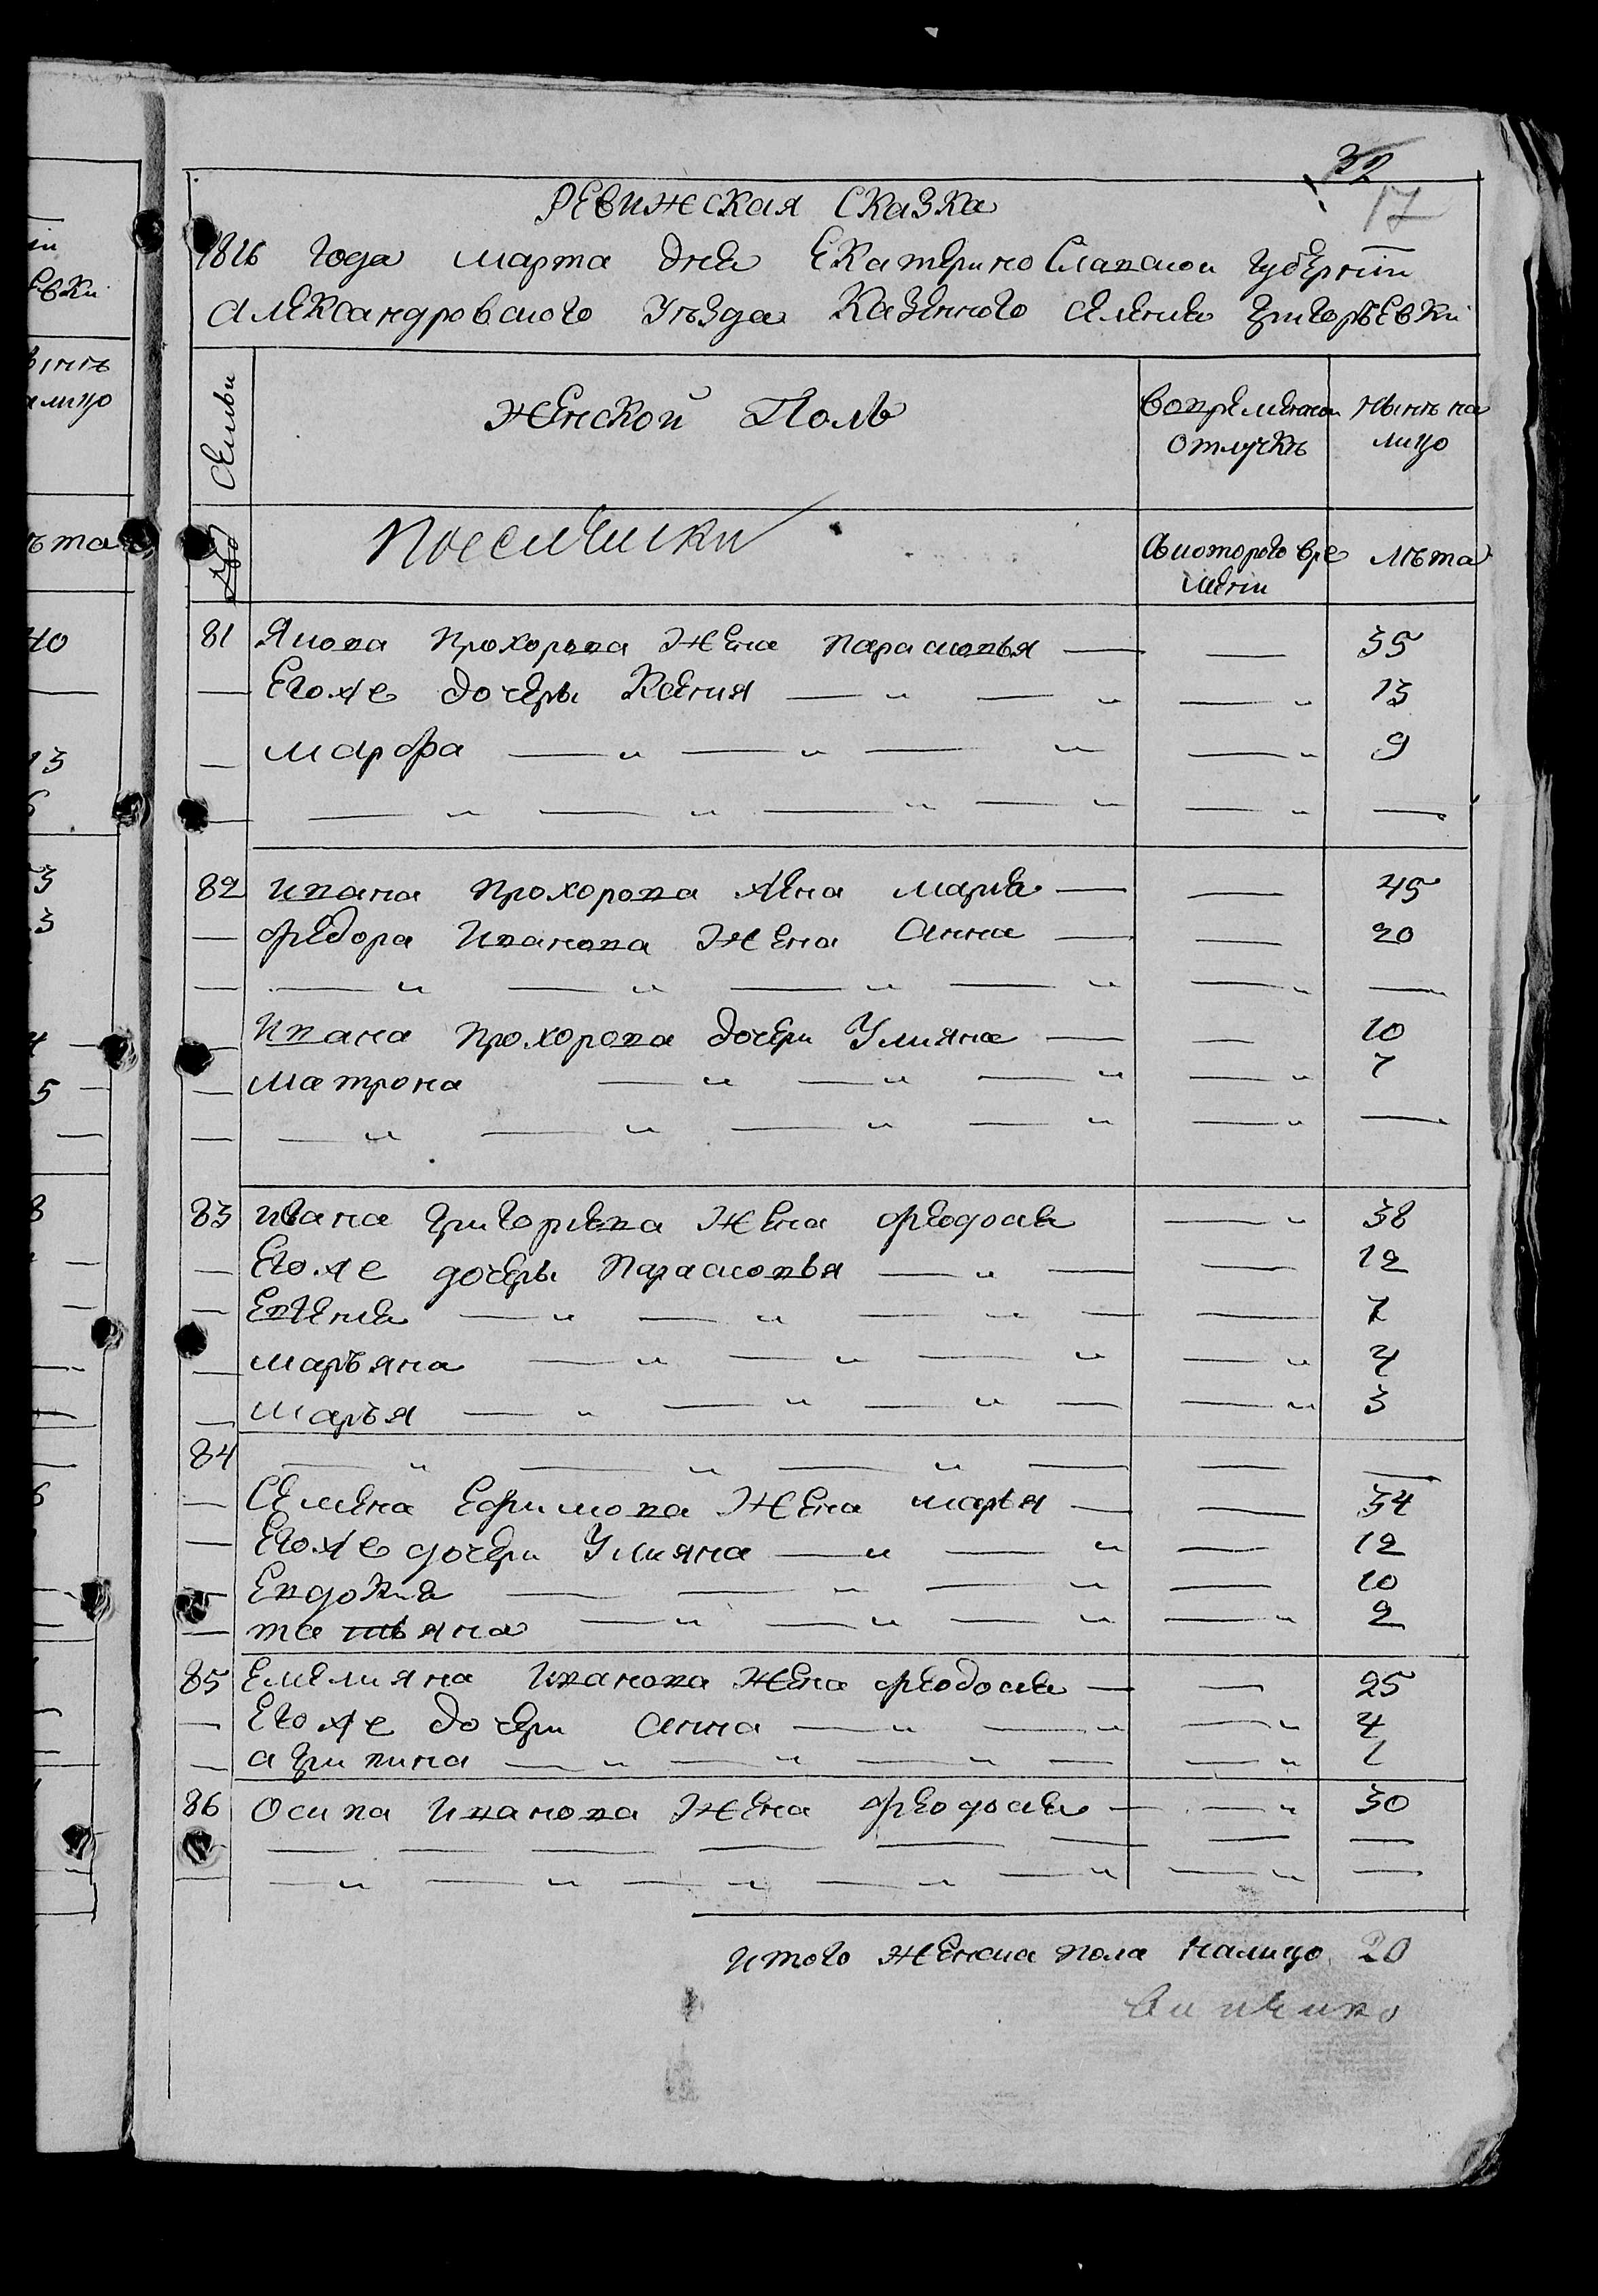 32
17
РЕВИЖСКАЯ СКАЗКА
1816 года марта дня Екатеринославской губернии
Александровского уезда Казенного селения Григорьевки
№ Семьи
Женской Полъ
Во временной отлучкѣ
нынѣ на лицо
Съ которого времени
лѣта
81 Якова Прохорова Жена Парасковья — — 35
— Его же дочеры Ксения — „ — „ — „ 13
— Марфа — „ — „ — „ — „ 9
— — „ — „ — „ — „ — „ —
82 Ивана Прохорова Жена Мария — — 45
— Федора Иванова Жена Анна — — 20
— — „ — „ — „ — „ — „ —
— Ивана Прохорова дочери Улияна — — 10
— Матрона — „ — „ — „ — „ 7
— — „ — „ — „ — „ — „ —
83 Ивана Григориева Жена Феодосия — „ 38
— Его же дочеры Парасковья — „ — — 12
— Евгения — „ — „ — „ — — 7
— Марьяна — „ — „ — „ — „ 4
— Марья — „ — „ — „ — — „ 3
84 — „ — „ — „ — — —
— Семена Ефимова Жена Марья — — 34
— Его же дочери Улияна — „ — „ — 12
— Евдокия — — „ — „ — 10
— татьяна — „ — „ — „ — „ 2
85 Емелияна Иванова Жена Феодосия — — 25
— Его же дочери Анна — „ — „ — „ 4
— агрипина — „ — „ — „ — — „ 1
86 Осипа Иванова Жена Феодосия — — „ 30
— — — — — — — —
— — „ — „ — „ — „ — „ — „ —
итого женска пола налицо 20